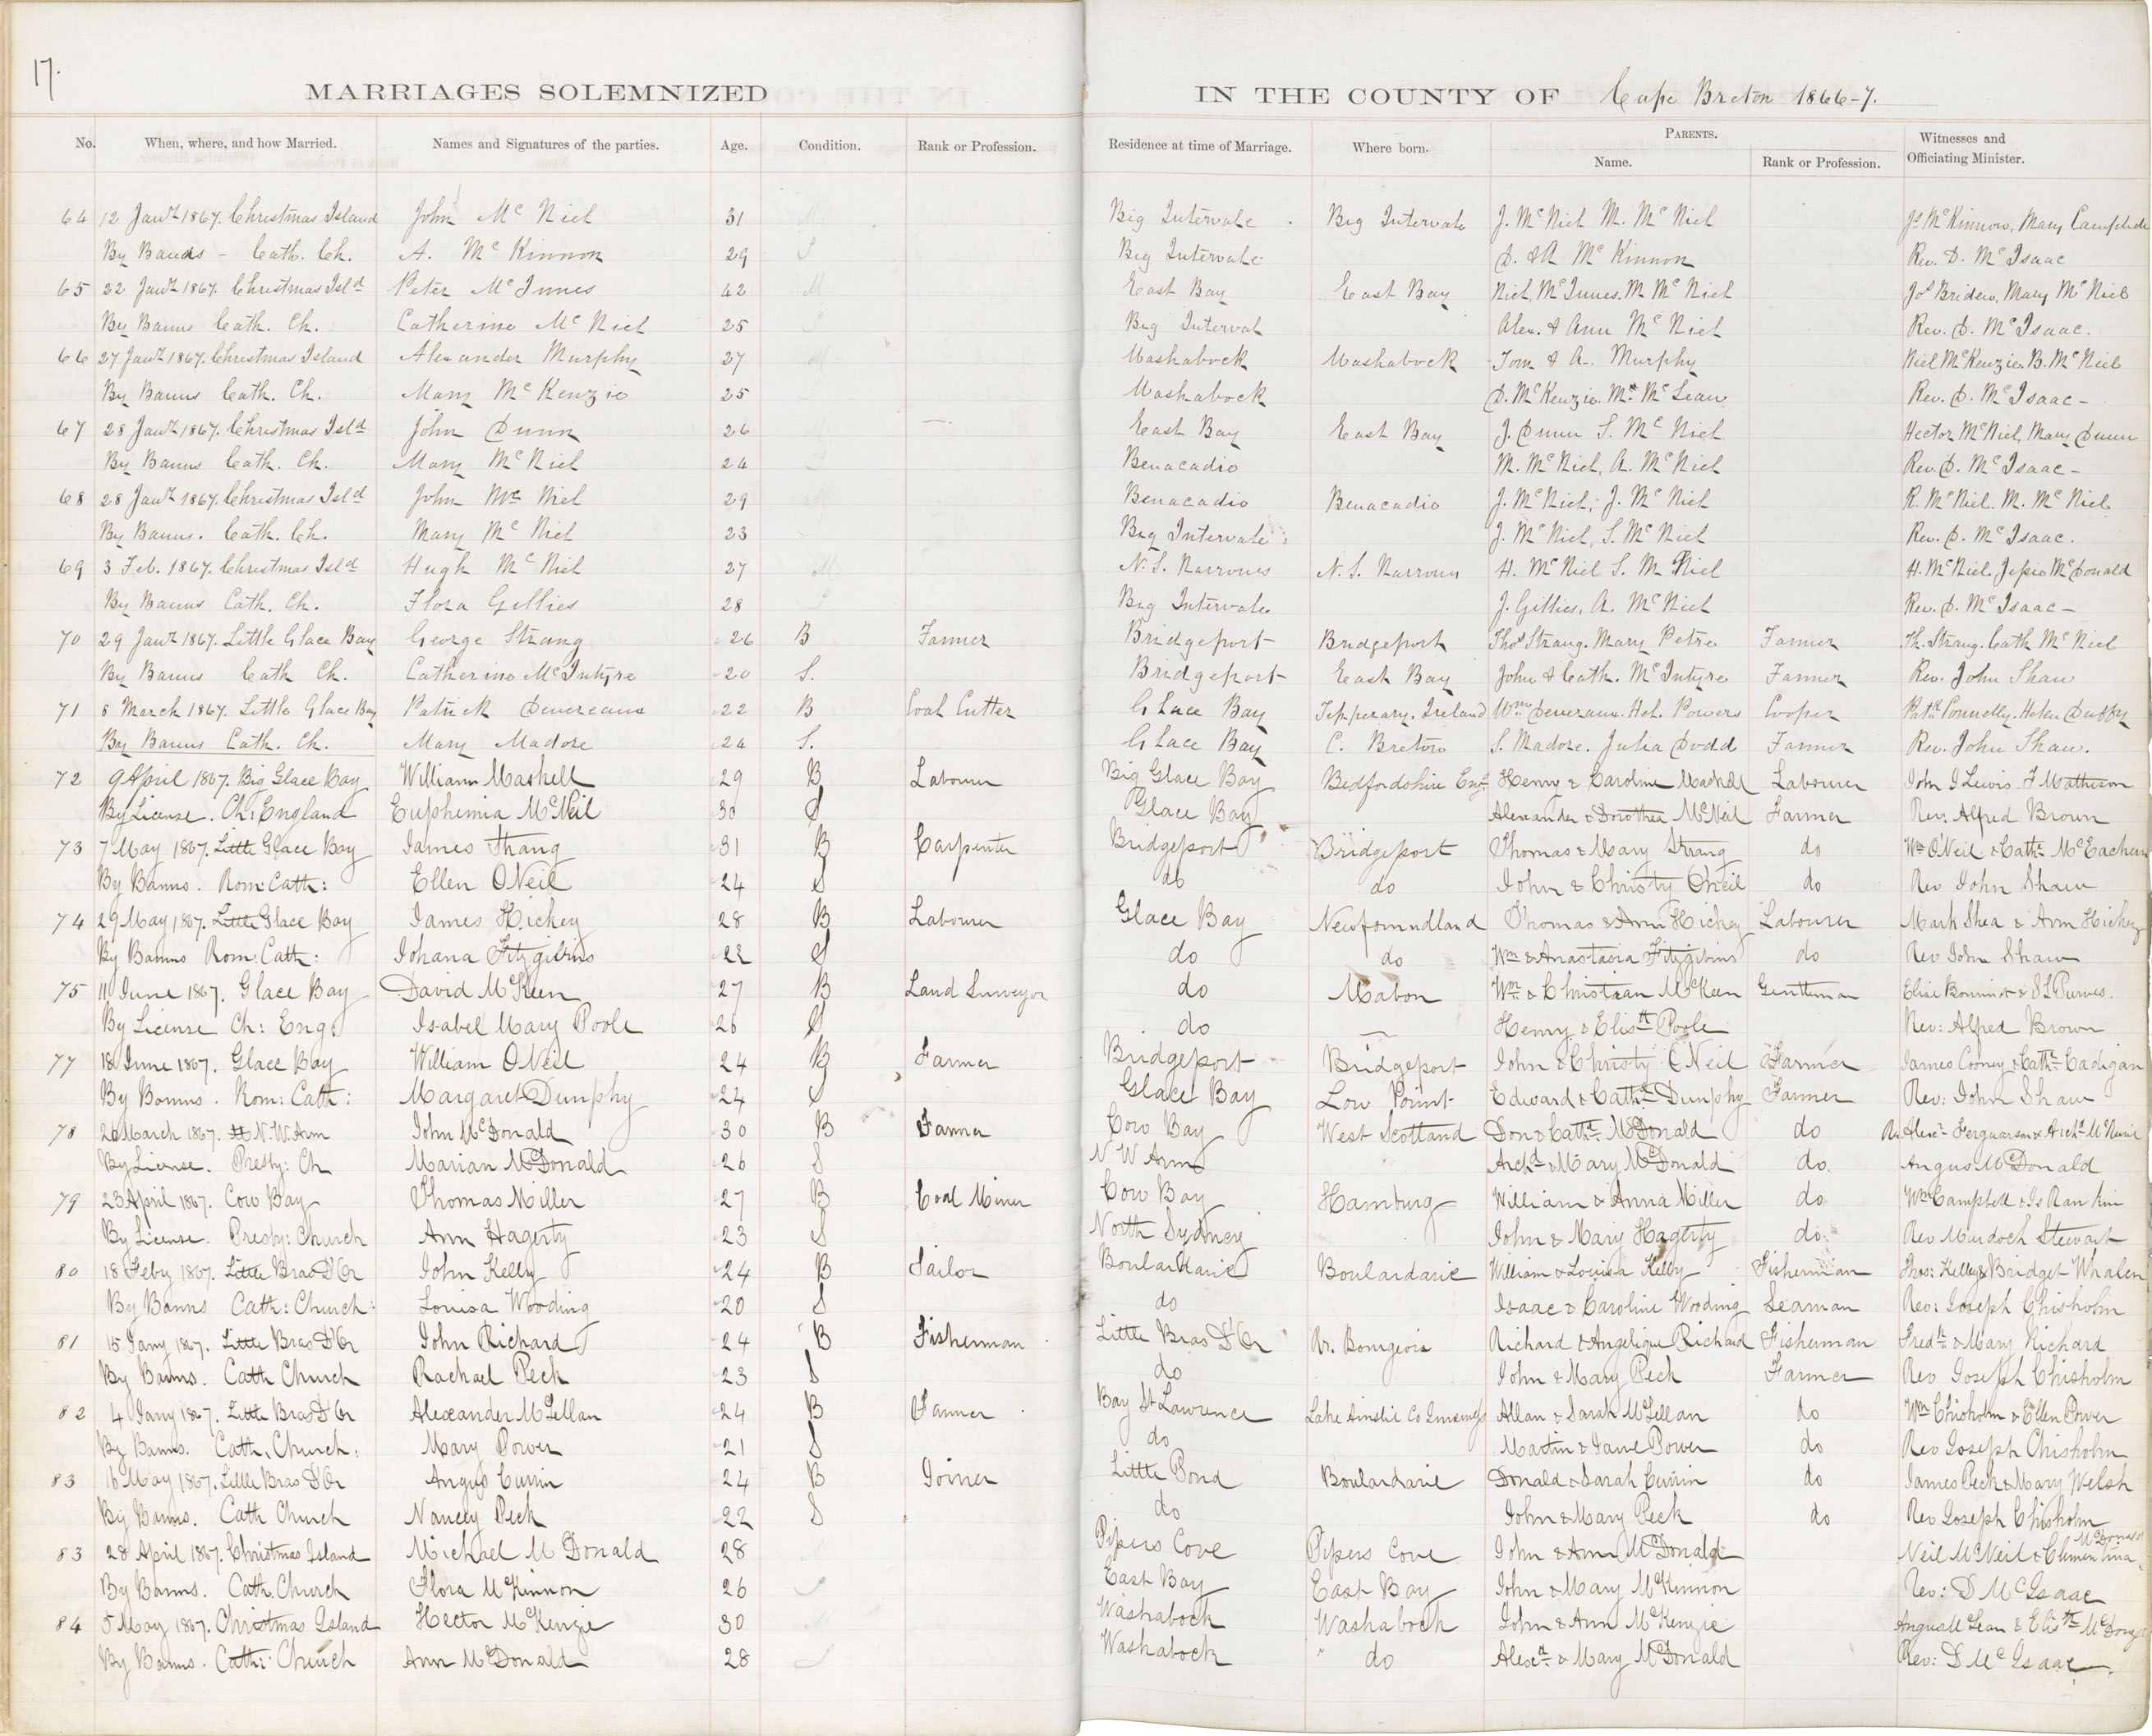 17.
MARRIAGES SOLEMNIZED IN THE COUNTY OF Cape Breton 1866-7.
No. When, where, and how Married. Names and Signatures of the parties. Age. Condition. Rank or Profession. Residence at time of Marriage. Where born. PARENTS. Name. Rank or Profession. Witnesses and Officiating Minister.
64 12 Jany 1867. Christmas Island John McNiel 31 Big Intervale Big Intervale J. McNiel M. McNiel Js McKinnon, Mary Campbell
By Banns - Cath. Ch. A. McKinnon 29 S Big Intervale D. & A McKinnon Rev. D. McIsaac
65 22 Jany 1867. Christmas Isld Peter McInnes 42 M East Bay East Bay Niel McInnes. M McNiel Jos Briden, Mary McNiel
By Banns Cath. Ch. Catherine McNiel 25 S Big Interval Alex. & Ann McNiel Rev. D. McIsaac.
66 27 Jany 1867. Christmas Island Alexander Murphy 27 Washabock Washabock Tom & A. Murphy Niel McKenzie. B. McNiel
By Banns Cath. Ch. Mary McKenzie 25 Washabock D. McKenzie. Mt McLean Rev. D. McIsaac -
67 28 Jany 1867. Christmas Isld John Dunn 26 — East Bay East Bay J. Dunn S. McNiel Hector McNiel, Mary Dunn
By Banns Cath. Ch. Mary McNiel 24 Benacadio M. McNiel, A. McNiel Rev. D. McIsaac -
68 28 Jany 1867. Christmas Isld John McNiel 29 Benacadio Benacadio J. McNiel; J. McNiel R. McNiel. M. McNiel
By Banns. Cath. Ch. Mary McNiel 23 Big Intervale J. McNiel, S. McNiel Rev. D. McIsaac.
69 3 Feb. 1867. Christmas Isld Hugh McNiel 27 M N. S. Narrows N. S. Narrows H. McNiel S. M Niel H. McNiel. Jessie McDonald
By Banns Cath. Ch. Flora Gillies 28 Big Intervale J. Gillies, A. McNiel Rev. D. McIsaac -
70 29 Jany 1867. Little Glace Bay George Strang 26 B Farmer Bridgeport Bridgeport Thos Strang. Mary Petre Farmer Th. Strang. Cath McNiel
By Banns Cath Ch. Catherine McIntyre 20 S. Bridgeport East Bay John & Cath. McIntyre Farmer Rev. John Shaw
71 8 March 1867. Little Glace Bay Patrick Devereaux 22 B Coal Cutter Glace Bay Tipperary. Ireland Wm Deveraux. Hel. Powers Cooper Patk Connelly. Helen Duffy
By Banns Cath. Ch. Mary Madore 24 S. Glace Bay C. Breton S. Madore. Julia Dodd Farmer Rev. John Shaw.
72 9 April 1867. Big Glace Bay William Maskell 29 B Labourer Big Glace Bay Bedfordshire Eng. Henry & Caroline Maskell Labourer John J Lewis. F Matheson
By License. Ch: England Euphemia McNeil 30 S Glace Bay Alexander & Dorothea McNeil Farmer Rev: Alfred Brown
73 7 May 1867. Little Glace Bay James Strang 31 B Carpenter Bridgeport Bridgeport Thomas & Mary Strang do Wm O'Neil & Cathe McEachern
By Banns. Rom: Cath: Ellen ONeil 24 S do do John & Christy Oneil do Rev John Shaw
74 29 May 1867. Little Glace Bay James Hickey 28 B Labourer Glace Bay Newfoundland Thomas & Ann Hickey Labourer Mark Shea & Ann Hickey
By Banns Rom: Cath: Johana Fitzgibins 22 S do do Wm & Anastasia Fitzgibins do Rev John Shaw
75 11 June 1867. Glace Bay David McKeen 27 B Land Surveyor do Mabou Wm & Christian McKeen Gentleman Elise Bourinot & S L Purves.
By License Ch: Eng. Isabel Mary Poole 26 S do — Henry & Elisth Poole Rev: Alfred Brown
77 18 June 1867. Glace Bay William ONeil 24 B Farmer Bridgeport Bridgeport John & Christy ONeil Farmer James Cooney & Cathe Cadigan
By Banns. Rom: Cath: Margaret Dunphy 24 S Glace Bay Low Point Edward & Cathe Dunphy Farmer Rev: John Shaw
78 26 March 1867. N. W. Arm John McDonald 30 B Farmer Cow Bay West Scotland Don & Cathe McDonald do Alexr Ferguarson & Archd McNeil
By License. Presby: Ch Marian McDonald 26 S N W Arm Archd & Mary McDonald do Angus McDonald
79 23 April 1867. Cow Bay Thomas Miller 27 B Coal Miner Cow Bay Hamburg William & Anna Miller do Wm Campbell & Is Rankin
By License. Presby: Church Ann Hagerty 23 S North Sydney John & Mary Hagerty do Rev Murdoch Stewart
80 18 Feby 1867. Little Bras D'Or John Kelly 24 B Sailor Boulardarie Boulardarie William & Louisa Kelly Fisherman Thos: Kelly & Bridget Whalen
By Banns Cath: Church: Louisa Wooding 20 S do Isaac & Caroline Wooding Seaman Rev: Joseph Chisholm
81 15 Jany 1867. Little Bras D'Or John Richard 24 B Fisherman Little Bras D'Or Rr. Bourgeois Richard & Angelique Richard Fisherman Fredk & Mary Richard
By Banns. Cath Church Rachael Peck 23 S do John & Mary Peck Farmer Rev Joseph Chisholm
82 4 Jany 1867. Little Bras D'Or Alexander McLellan 24 B Farmer Bay St Lawrence Lake Ainslie Co Inverness Allan & Sarah McLellan do Wm Chisholm & Ellen Power
By Banns. Cath, Church: Mary Power 21 S do Martin & Jane Power do Rev Joseph Chisholm
83 16 May 1867. Little Bras D'Or Angus Currin 24 B Joiner Little Pond Boulardarie Donald & Sarah Currin do James Peck & Mary Welsh
By Banns. Cath Church Nancy Peck 22 S do John & Mary Peck do Rev Joseph Chisholm
83 28 April 1867. Christmas Island Michael McDonald 28 Pipers Cove Pipers Cove John & Ann McDonald Neil McNeil & Clementina McDonald
By Banns. Cath. Church Flora McKinnon 26 S East Bay East Bay John & Mary McKinnon Rev: D McIsaac
84 5 May 1867. Christmas Island Hector McKenzie 30 Washabock Washabock John & Ann McKenzie Angus McLean & Elisth McDougal
By Banns. Cath: Church Ann McDonald 28 S Washabock do Alexr & Mary McDonald Rev: D McIsaac.